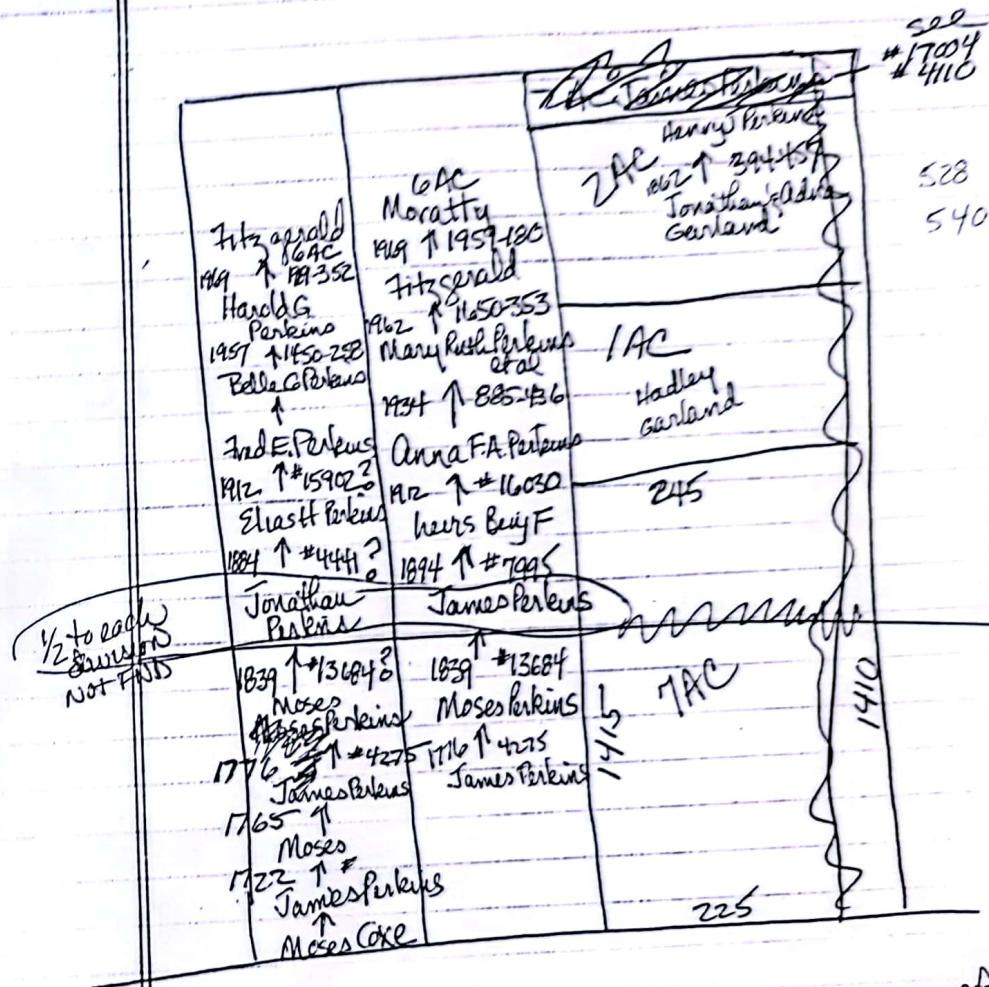 see
#17004
#4110
528
540
Fitzgerald
6AC
1969 ↑ 1789-352
Harold G
Perkins
1957 ↑ 1450-258
Belle G Perkins
↑
Fred E. Perkins
1912 ↑ #15902?
Elias H Perkins
1884 ↑ #4441?
Jonathan
Perkins
1839 ↑ #13684?
Moses
Moses Perkins
1776 ↑ #4275
James Perkins
1765 ↑
Moses
1722 ↑ #
James Perkins
↑
Moses Coxe
6AC
Moratty
1969 ↑ 1959-180
Fitzgerald
1962 ↑ 1650-353
Mary Ruth Perkins
et al
1934 ↑ 885-436
Anna F.A. Perkins
1912 ↑ #16030
heirs Benj F
1894 ↑ #7995
James Perkins
1839 ↑ #13684
Moses Perkins
1776 ↑ 4275
James Perkins
James Perkins
Henry Perkins
2AC
1862 ↑ 394-457
Jonathan & Adna
Garland
1AC
Hadley
Garland
245
7AC
1415
1410
225
1/2 to each
Division
NOT FND